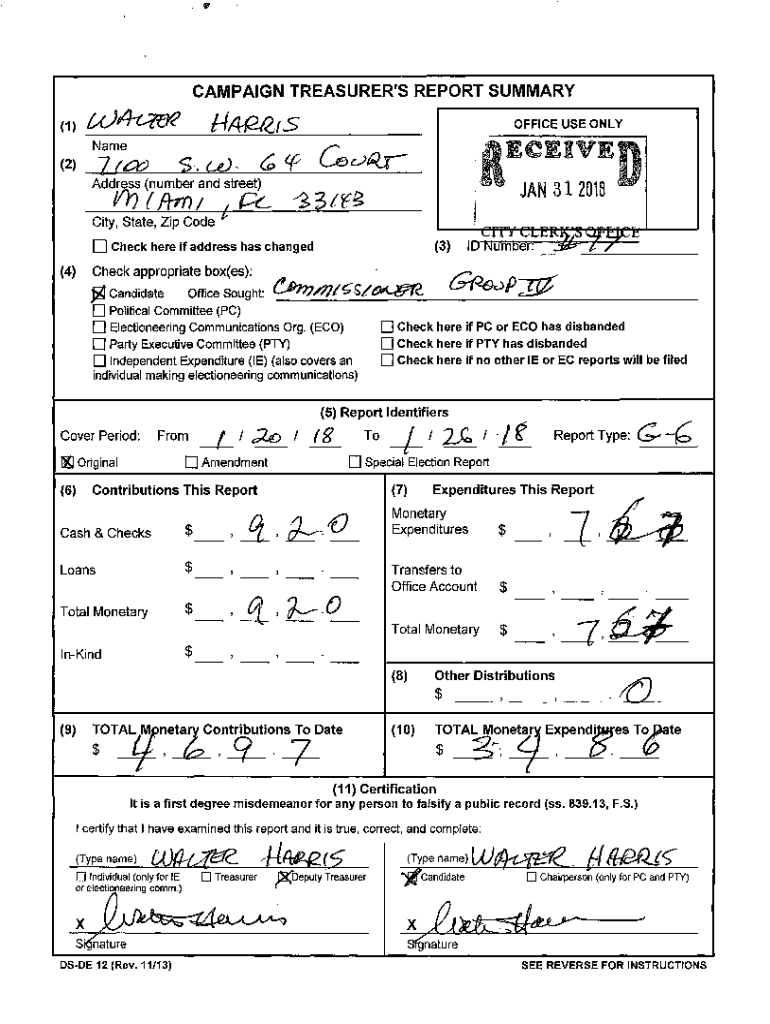 CAMPAIGN TREASURER'S REPORT SUMMARY
(1) WALTER HARRIS
Name
(2) 7100 S.W. 64 COURT
Address (number and street)
MIAMI, FL 33143
City, State, Zip Code
☐ Check here if address has changed
OFFICE USE ONLY
RECEIVED
JAN 31 2018
CITY CLERK'S OFFICE
(3) ID Number:
(4) Check appropriate box(es):
☒ Candidate Office Sought: COMMISSIONER GROUP IV
☐ Political Committee (PC)
☐ Electioneering Communications Org. (ECO)
☐ Party Executive Committee (PTY)
☐ Independent Expenditure (IE) (also covers an
individual making electioneering communications)
☐ Check here if PC or ECO has disbanded
☐ Check here if PTY has disbanded
☐ Check here if no other IE or EC reports will be filed
(5) Report Identifiers
Cover Period: From 1 / 20 / 18 To 1 / 26 / 18 Report Type: G-6
☒ Original ☐ Amendment ☐ Special Election Report
(6) Contributions This Report
Cash & Checks $ , 9 , 2 . 0
Loans $ , , .
Total Monetary $ , 9 , 2 . 0
In-Kind $ , , .
(7) Expenditures This Report
Monetary
Expenditures $ , 7 ,
Transfers to
Office Account $ , , .
Total Monetary $ , 7 , 6
(8) Other Distributions
$ , , . 0
(9) TOTAL Monetary Contributions To Date
$ 4 , 6 , 9 . 7
(10) TOTAL Monetary Expenditures To Date
$ 3 , 4 , 8 . 6
(11) Certification
It is a first degree misdemeanor for any person to falsify a public record (ss. 839.13, F.S.)
I certify that I have examined this report and it is true, correct, and complete:
(Type name) WALTER HARRIS
☐ Individual (only for IE ☐ Treasurer ☒ Deputy Treasurer
or electioneering comm.)
X Walter Harris
Signature
(Type name) WALTER HARRIS
☒ Candidate ☐ Chairperson (only for PC and PTY)
X Walter Harris
Signature
DS-DE 12 (Rev. 11/13) SEE REVERSE FOR INSTRUCTIONS